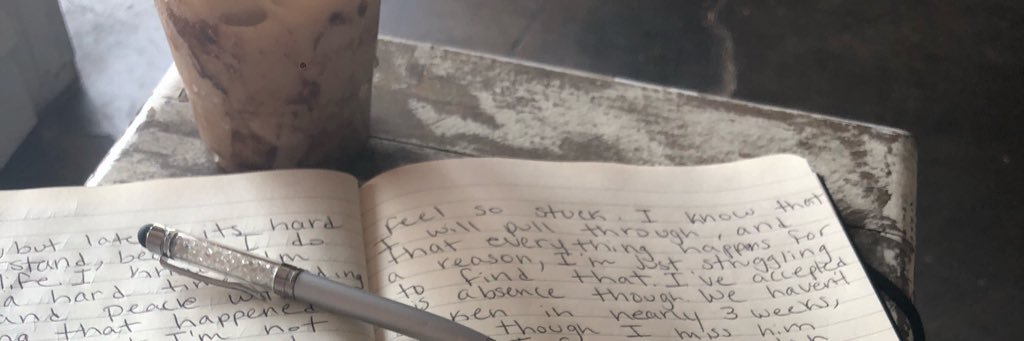 but late its hard
stand, be I do
life I
a hard
and peace
that happened
I'm not
feel so stuck. I know that
I will pull through, and
that everything happens for
a reason, I'm just struggling
to find that. I've accepted
absence though. We haven't
in nearly 3 weeks,
though I miss him